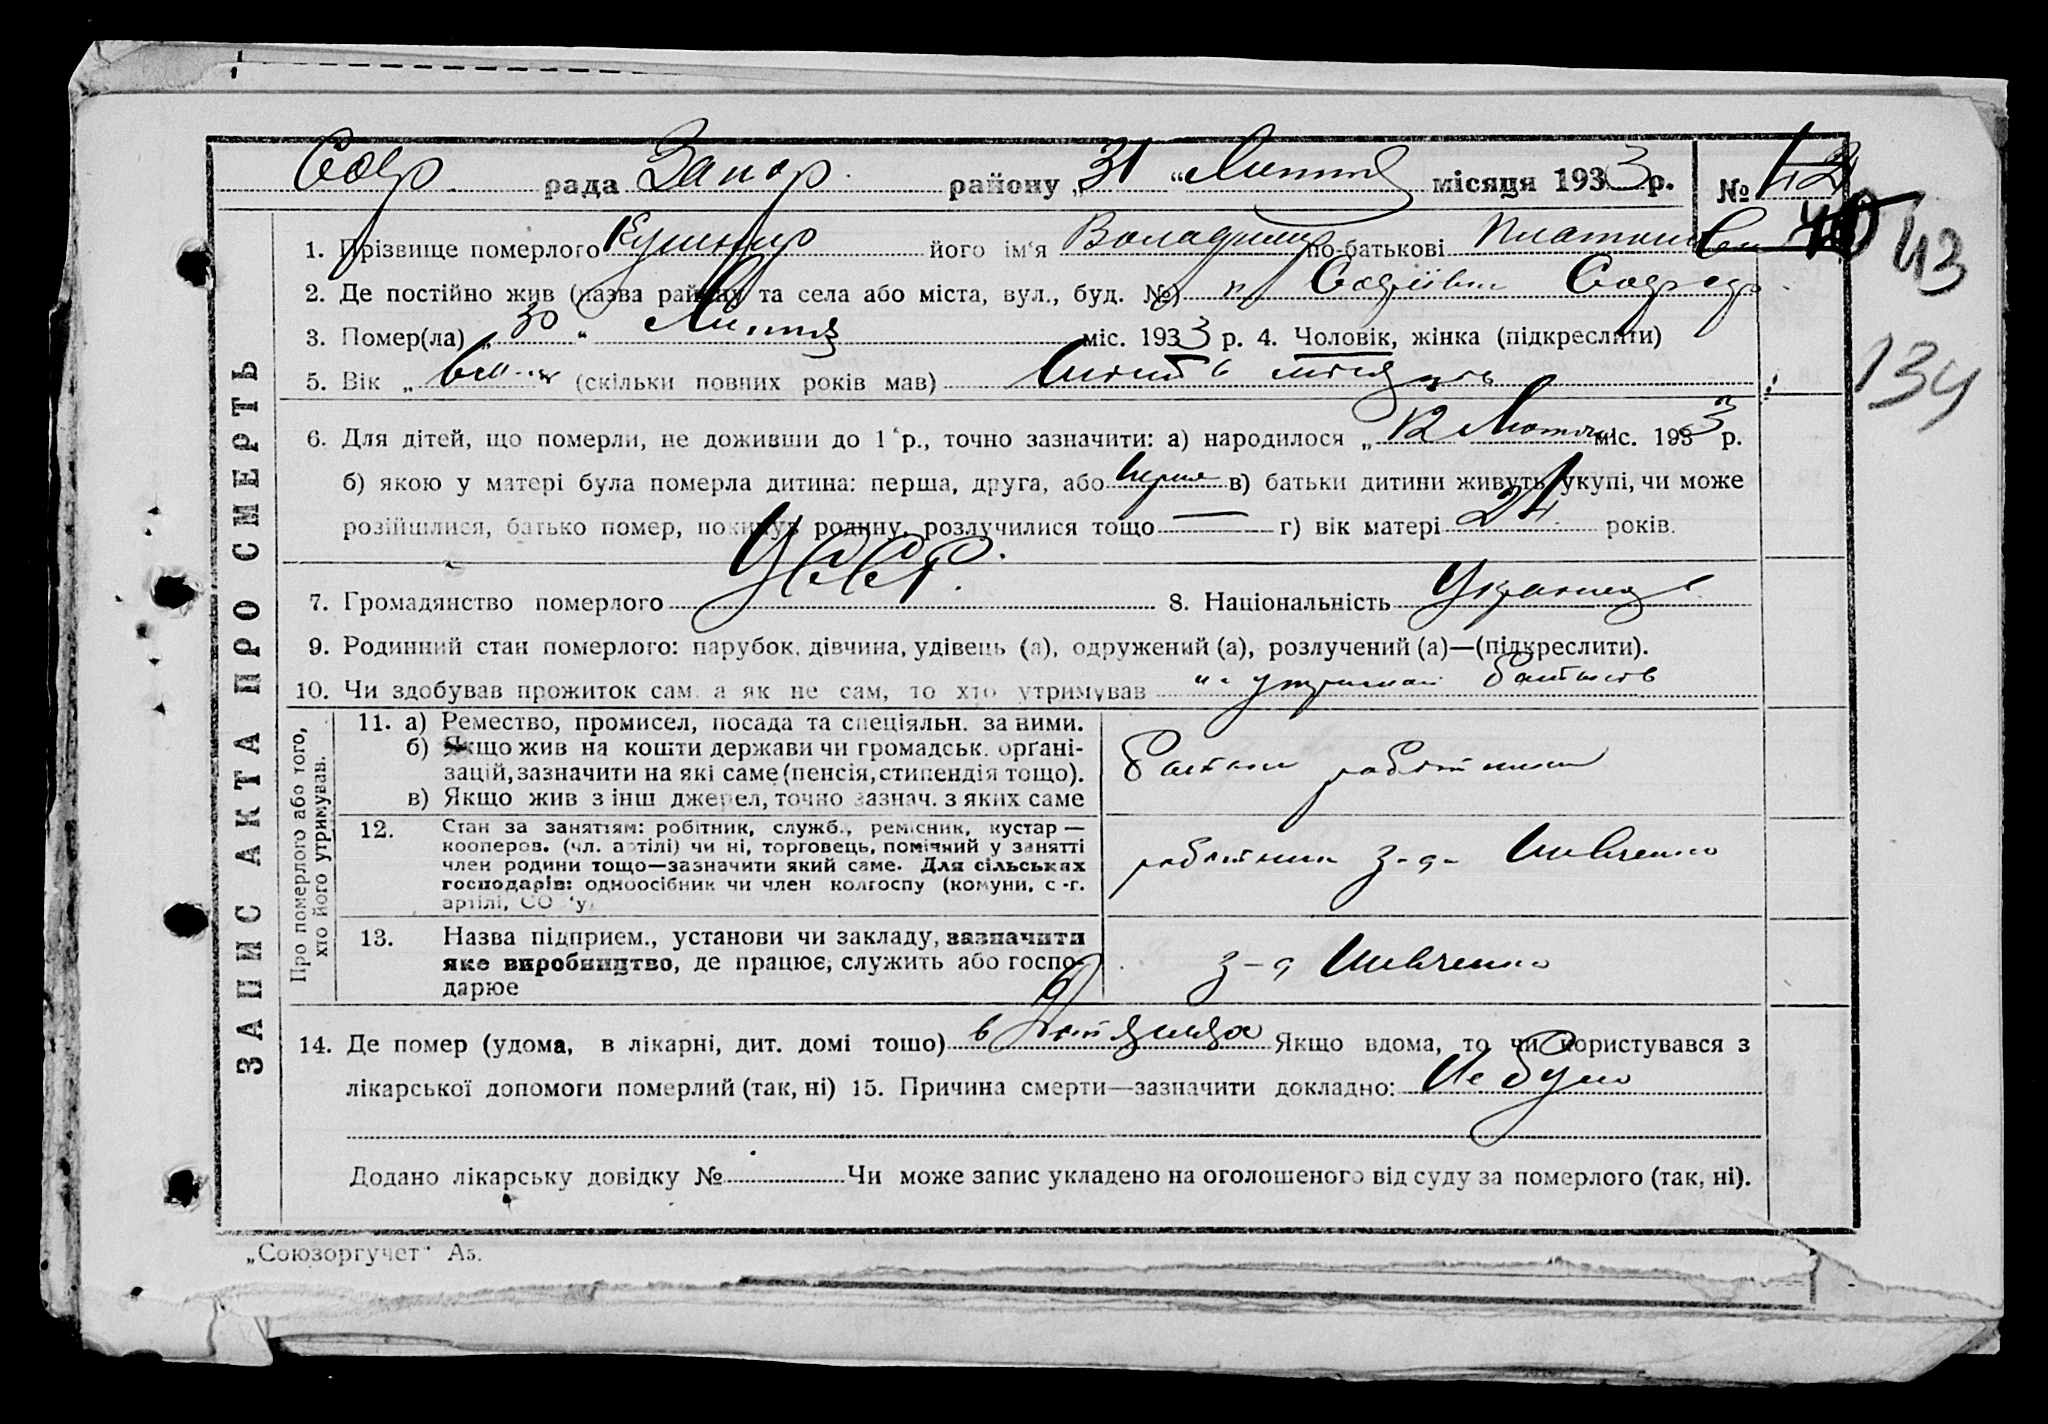 рада Запор. району „31" Липня місяця 1933 р. №
1. Прізвище померлого Кушнир його ім'я Володимир по-батькові
43
2. Де постійно жив (назва району та села або міста, вул., буд. №)
3. Помер(ла) „30" Липня міс. 1933 р. 4. Чоловік, жінка (підкреслити)
134
5. Вік „ (скільки повних років мав) шість місяців
6. Для дітей, що померли, не доживши до 1 р., точно зазначити: а) народилося „12 Лютого міс. 1933 р.
б) якою у матері була померла дитина: перша, друга, або перша в) батьки дитини живуть укупі, чи може
розійшлися, батько помер, покинув родину, розлучилися тощо — г) вік матері 24 років.
7. Громадянство померлого УССР. 8. Національність Українець
9. Родинний стан померлого: парубок, дівчина, удівець (а), одружений (а), розлучений (а)—(підкреслити).
10. Чи здобував прожиток сам, а як не сам, то хто утримував батьків
ЗАПИС АКТА ПРО СМЕРТЬ
Про померлого або того,
хто його утримував.
11. а) Ремество, промисел, посада та спеціяльн. за ними.
б) Якщо жив на кошти держави чи громадськ. орґані-
зацій, зазначити на які саме (пенсія, стипендія тощо).
в) Якщо жив з інш джерел, точно зазнач. з яких саме
12. Стан за заняттям: робітник, служб., ремісник, кустар—
кооперов. (чл. артілі) чи ні, торговець, помічний у занятті
член родини тощо—зазначити який саме. Для сільських
господарів: одноосібник чи член колгоспу (комуни, с.-г.
артілі, СО
робітник з-д Шевченко
13. Назва підприєм., установи чи закладу, зазначити
яке виробництво, де працює, служить або госпо-
дарює
з-д Шевченко
14. Де помер (удома, в лікарні, дит. домі тошо) в Якщо вдома, то чи користувався з
лікарської допомоги померлий (так, ні) 15. Причина смерти—зазначити докладно: Не було
Додано лікарську довідку № Чи може запис укладено на оголошеного від суду за померлого (так, ні).
„Союзоргучет" А5.